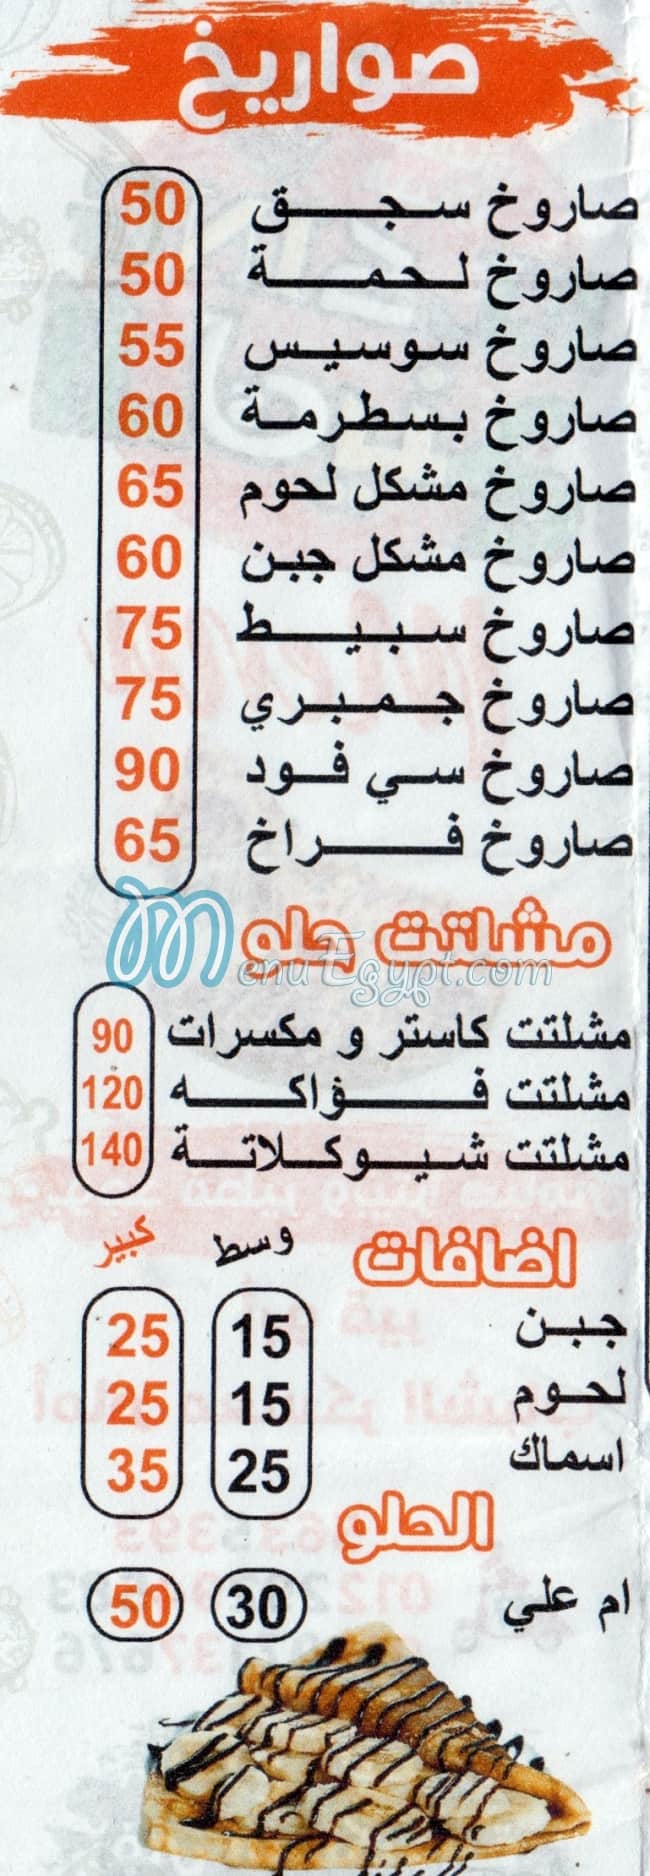 صواريخ
صاروخ سجق 50
صاروخ لحمة 50
صاروخ سوسيس 55
صاروخ بسطرمة 60
صاروخ مشكل لحوم 65
صاروخ مشكل جبن 60
صاروخ سبيط 75
صاروخ جمبري 75
صاروخ سي فود 90
صاروخ فراخ 65
مشلتت حلو
MenuEgypt.com
مشلتت كاستر و مكسرات 90
مشلتت فؤاكه 120
مشلتت شيوكلاتة 140
اضافات وسط كبير
جبن 15 25
لحوم 15 25
اسماك 25 35
الحلو
ام علي 30 50